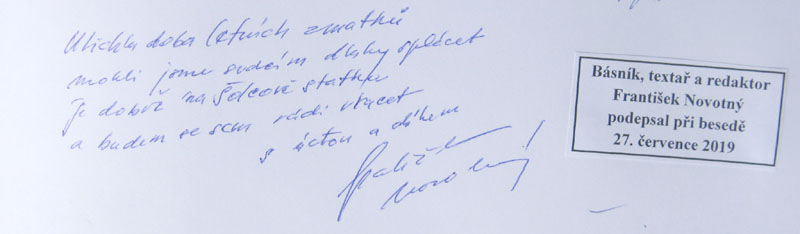 Utichla doba letních zmatků
mohli jsme srdcím dluhy splácet
Je dobře na Šolcově statku
a budem se sem rádi vracet
s úctou a díkem
František
Novotný
Básník, textař a redaktor
František Novotný
podepsal při besedě
27. července 2019